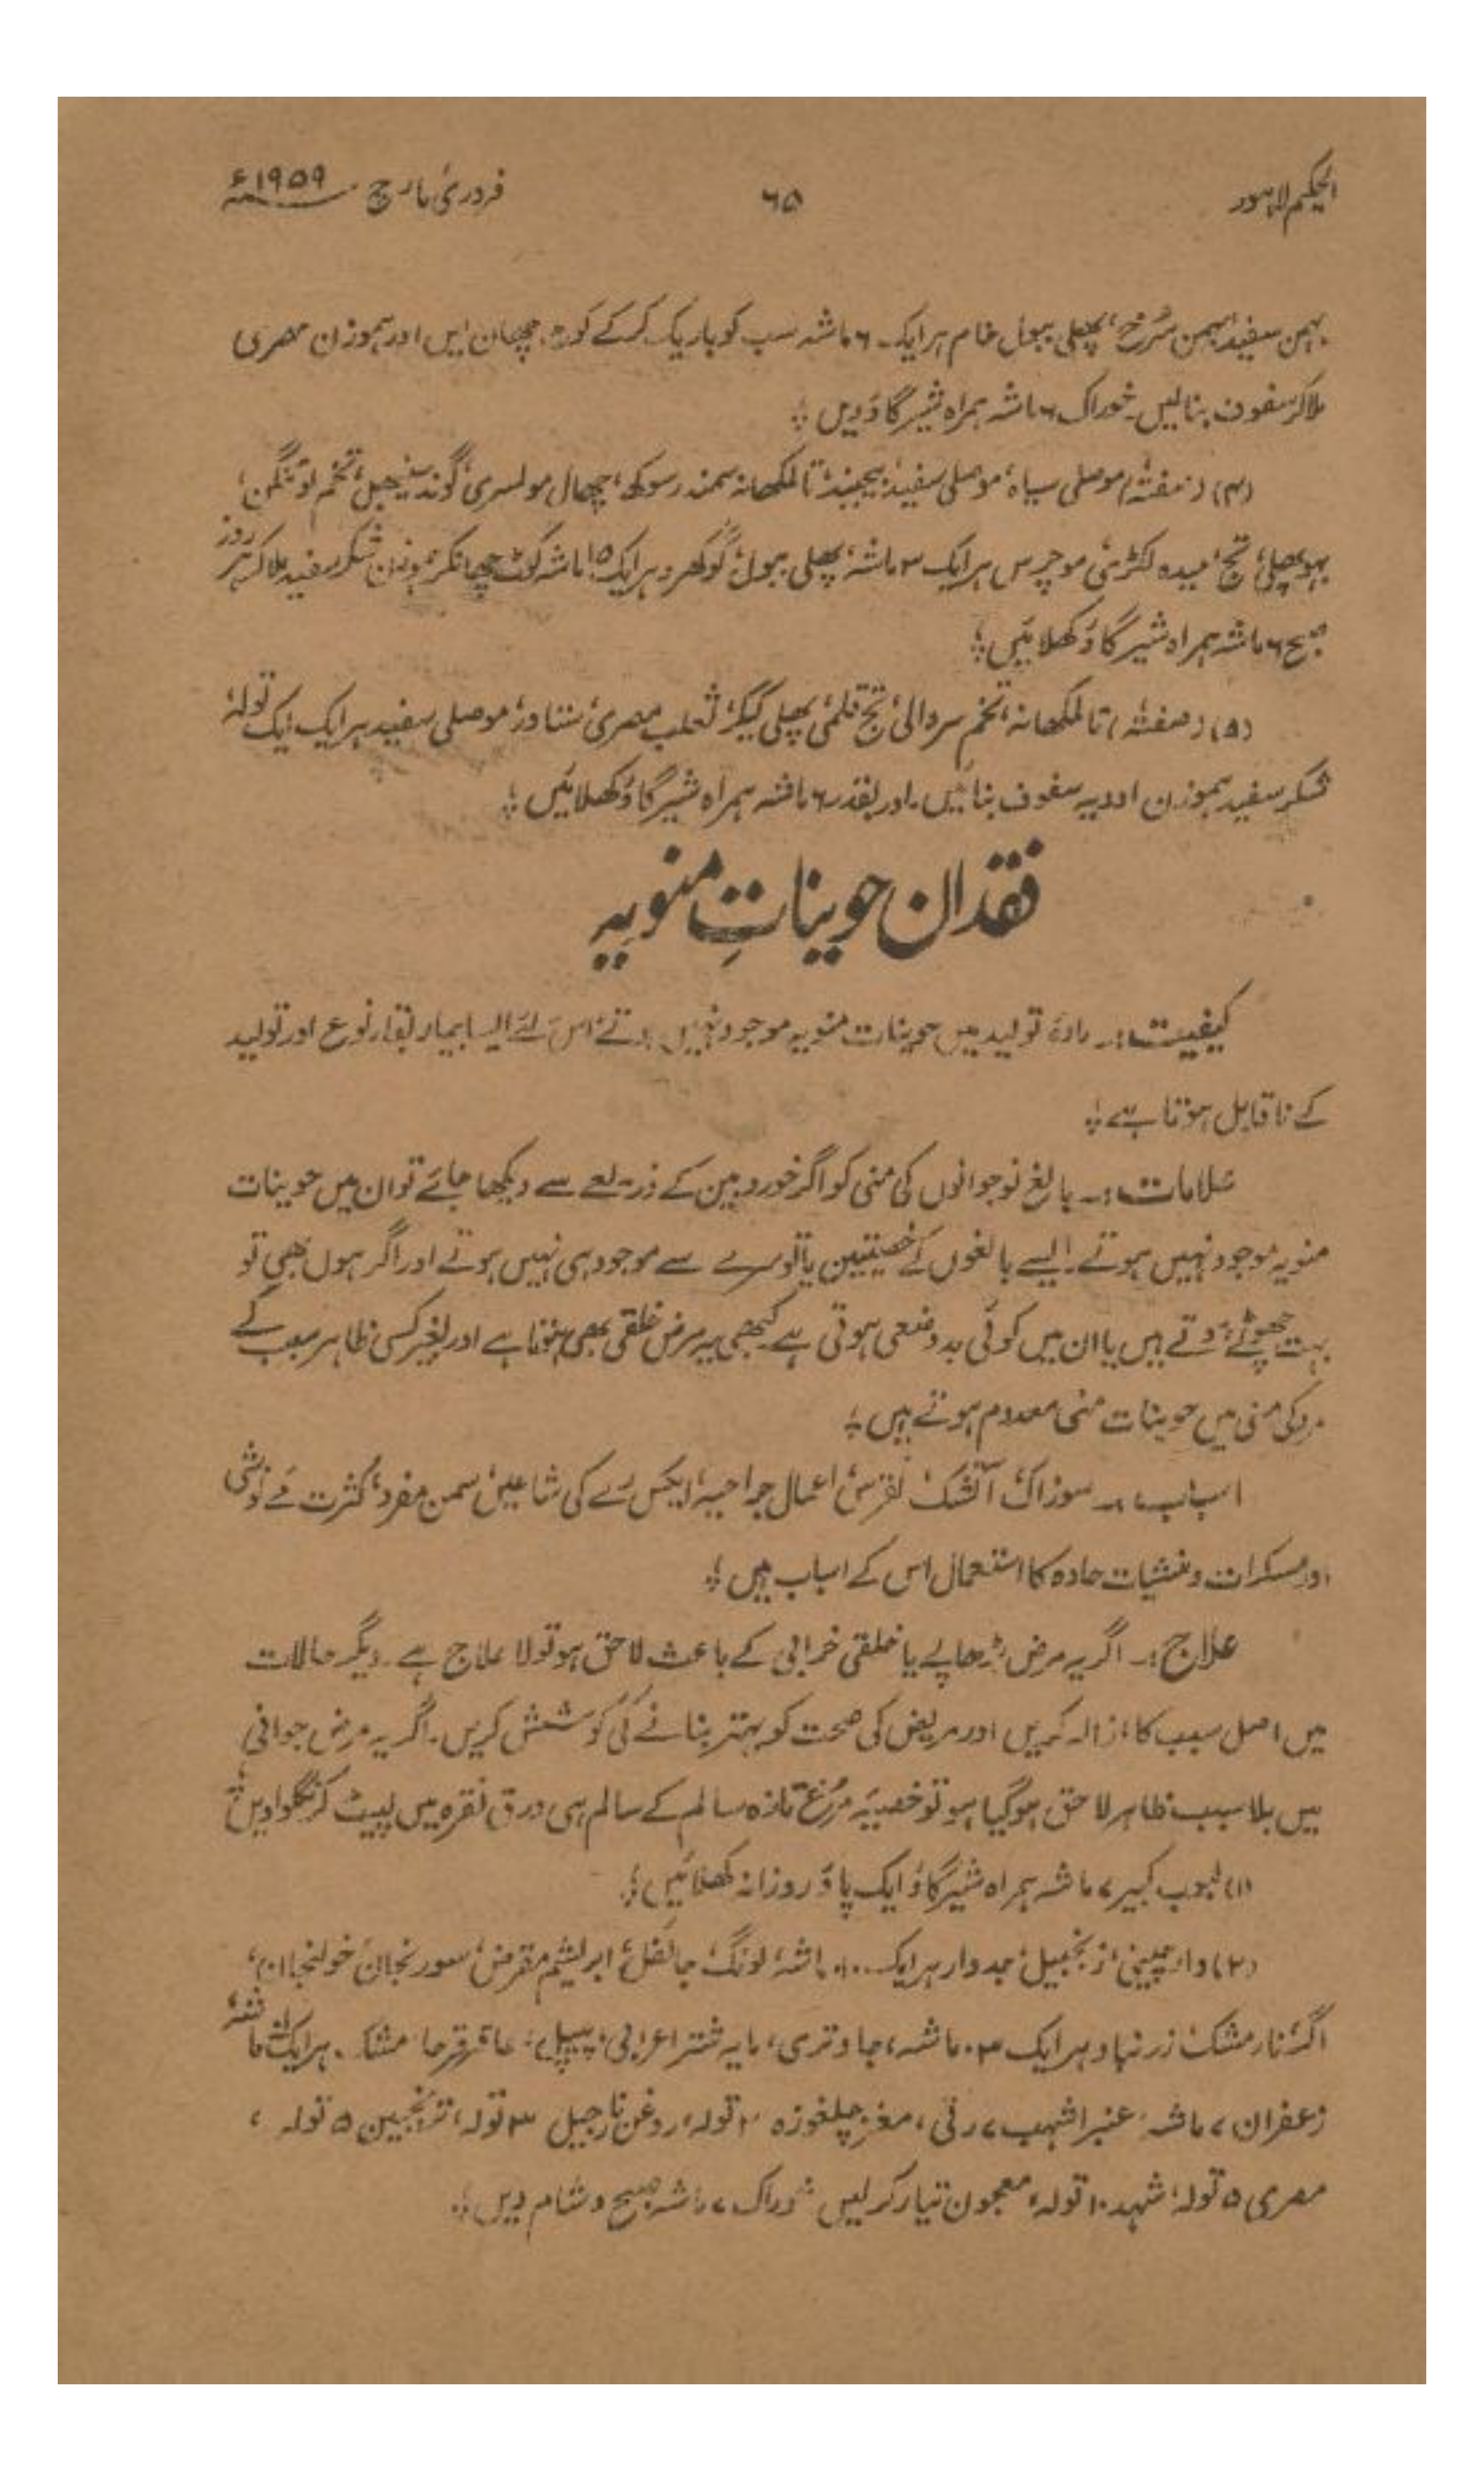 الحکیم لاہور ۶۵ فروری مارچ ۱۹۵۹ء
بہمن سفید، بہمن سُرخ، پھلی ببول خام ہر ایک ۶ ماشہ سب کو باریک کرکے کوٹ چھان لیں اور ہموزن مصری
ملاکر سفوف بنالیں۔ خوراک ۶ ماشہ ہمراہ شیر گاؤ دیں ؛
(۴) (صفتہٗ) موصلی سیاہ، موصلی سفید، بیجبند، تالمکھانہ سمندر سوکھ، چھال مولسری، گوند تخم
تج، میدہ لکڑی، موچرس ہر ایک ۳ ماشہ، پھلی ببول، گوکھرو ہر ایک ماشہ کوٹ چھانکر ہموزن شکر سفید ملاکر ہر روز
صبح ۶ ماشہ ہمراہ شیر گاؤ کھلائیں ؛
(۵) (صفتہٗ) تالمکھانہ، تخم سروالی، تج قلمی، پھلی کیکر، ثعلب مصری، ستاور، موصلی سفید ہر ایک ایک تولہ،
شکر سفید ہموزن ادویہ سفوف بنائیں۔ اور بقدر ۶ ماشہ ہمراہ شیر گاؤ کھلائیں ؛
فقدان حویناتِ منویہ
کیفیت:۔ مادۂ تولید میں حوینات منویہ موجود نہیں ہوتے، اس لئے ایسا بیمار بقاء نوع اور تولید
کے ناقابل ہوتا ہے ؛
علامات:۔ بالغ نوجوانوں کی منی کو اگر خوردبین کے ذریعے سے دیکھا جائے تو ان میں حوینات
منویہ موجود نہیں ہوتے۔ ایسے بالغوں کے خصیتین یا تو سرے سے موجود ہی نہیں ہوتے اور اگر ہوں بھی تو
بہت چھوٹے ہوتے ہیں یا ان میں کوئی بدوضعی ہوتی ہے۔ کبھی یہ مرض خلقی بھی ہوتا ہے اور بغیر کسی ظاہر سبب کے
مرد کی منی میں حوینات منی معدوم ہوتے ہیں ؛
اسباب:۔ سوزاک، آتشک، نقرس، اعمال جراحیہ، ایکس رے کی شاعیں، سمن مفرد، کثرت مے نوشی
اور مسکرات و منشیات حادہ کا استعمال اس کے اسباب ہیں ؛
علاج:۔ اگر یہ مرض بڑھاپے یا خلقی خرابی کے باعث لاحق ہو تو لا علاج ہے۔ دیگر حالات
میں اصل سبب کا ازالہ کریں اور مریض کی صحت کو بہتر بنانے کی کوشش کریں۔ اگر یہ مرض جوانی
میں بلا سبب ظاہر لاحق ہوگیا ہو تو خصیۂ مرغ تازہ سالم کے سالم ہی ورق نقرہ میں لپیٹ کر نگلوادیں ؛
(۱) لبوب کبیر ۷ ماشہ ہمراہ شیر گاؤ ایک پاؤ روزانہ کھلائیں ؛
(۲) دارچینی، زنجبیل، جدوار ہر ایک ماشہ، لونگ، جائفل، ابریشم مقرض، سورنجان، خولنجان،
اگر، نارمشک، زرنباد ہر ایک ماشہ، جاوتری، مایہ شتر اعرابی، پیپلی، عاقرقرحا، مشک ہر ایک ماشہ،
زعفران ۷ ماشہ، عنبر اشہب ۷ رتی، مغز چلغوزہ تولہ، روغن نارجیل ۳ تولہ، ترنجبین ۵ تولہ،
مصری ۵ تولہ، شہد ۱۰ تولہ، معجون تیار کرلیں۔ خوراک ۷ ماشہ صبح و شام دیں ؛